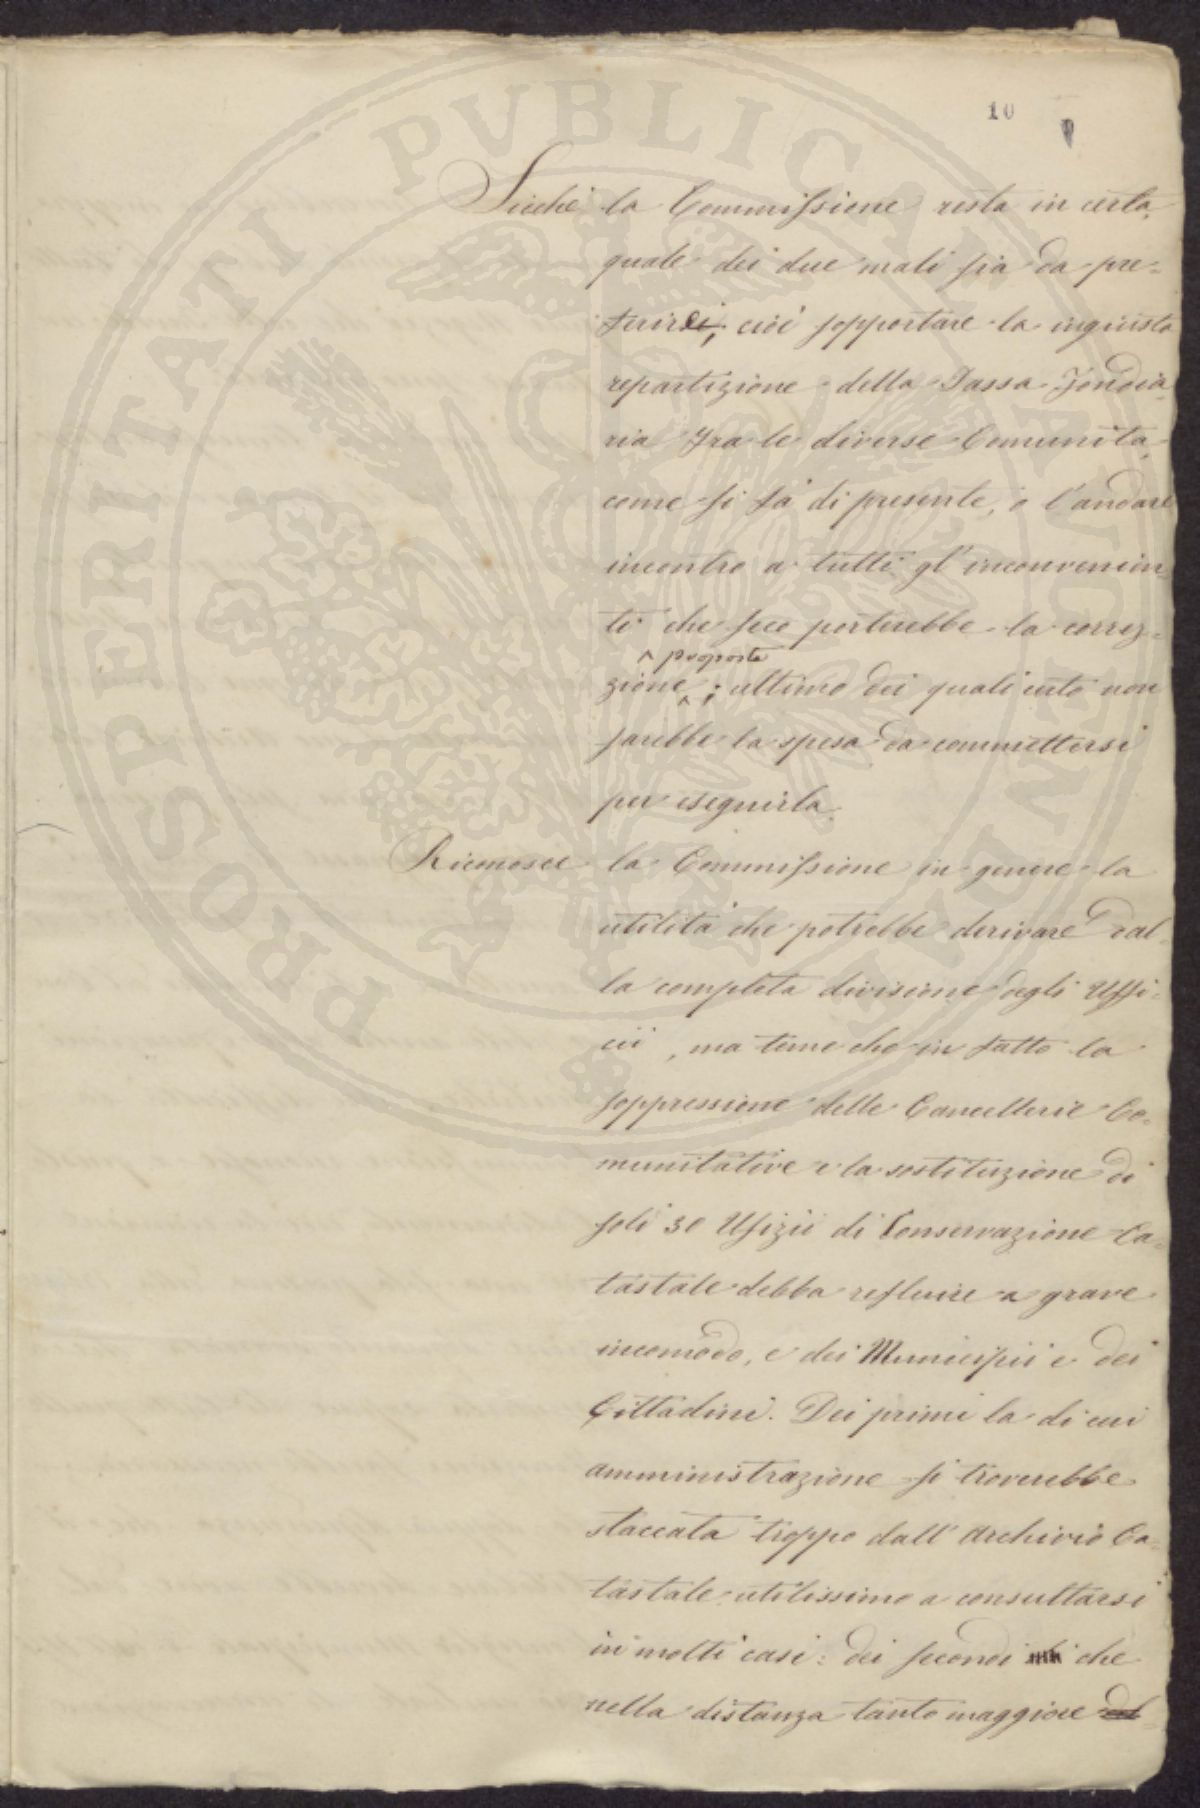 PROSPERITATI PVBLICAE AVGENDAE
10
Sicchè la Commissione resta in certa,
quale dei due mali sia da pre-
ferirsi, cioè sopportare la ingiusta
repartizione della Tassa Fondia-
ria fra le diverse Comunità,
come si fà di presente, o l'andare
incontro a tutti gl'inconvenien-
ti che seco porterebbe la corre-
^ proposta
zione ^; ultimo dei quali certo non
sarebbe la spesa da commettersi
per eseguirla.
Riconosce la Commissione in genere la
utilità che potrebbe derivare dal-
la completa divisione degli Uffi-
cii, ma teme che in fatto la
soppressione delle Cancellerie Co-
munitative e la sostituzione di
soli 30 Ufizii di Conservazione Ca-
tastale debba refluire a grave
incomodo, e dei Municipii e dei
Cittadini. Dei primi la di cui
amministrazione si troverebbe
staccata troppo dall'Archivio Ca-
tastale utilissimo a consultarsi
in molti casi: dei secondi che
nella distanza tanto maggiore del